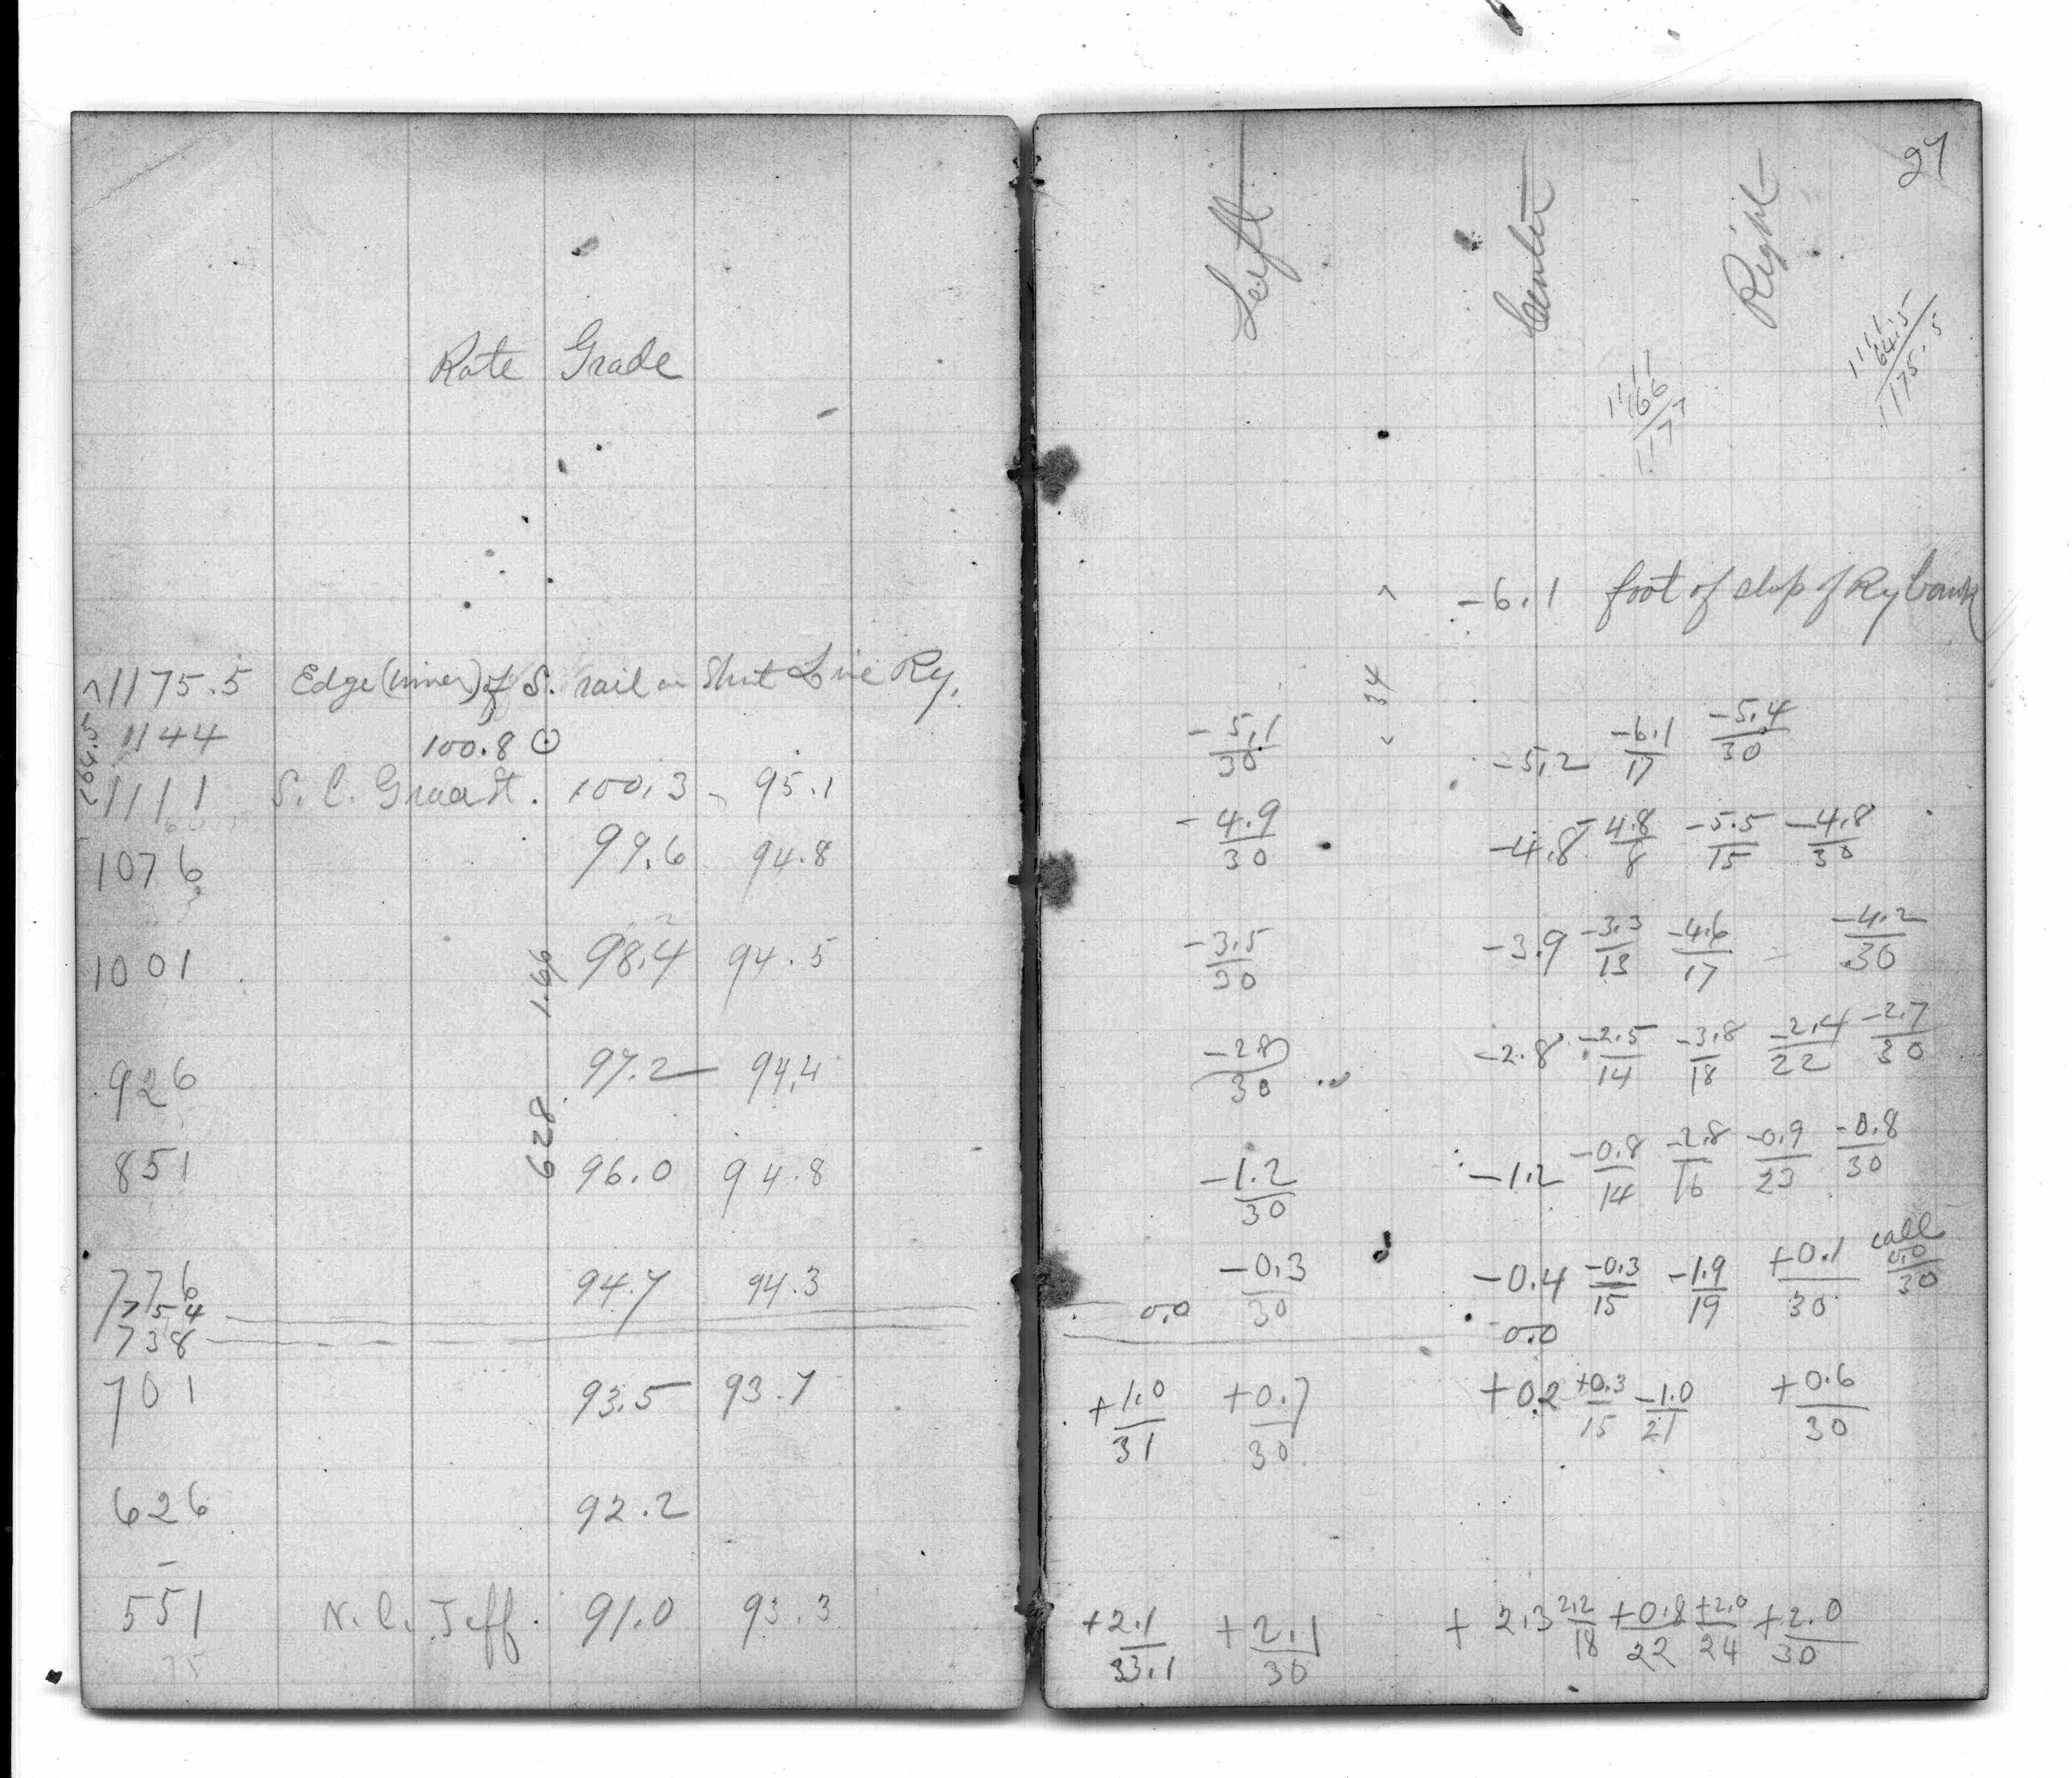 Rate Grade
^1175.5 Edge (inner) of S. rail on Short Line Ry.
1144 100.8 ⊙
64.5
1111 S. C. Grand St. 100.3 - 95.1
1076 99.6 94.8
1001 98.4 94.5
1.66
926 97.2 94.4
628
851 96.0 94.8
776 94.7 94.3
754
738
701 93.5 93.7
626 92.2
551 N. C. Jeff. 91.0 93.3
75
27
Left Center Right
1111
66
1177
1111
64.5
1175.5
-6.1 foot of slop of Ry bank
34
-5.1/30 -5.2 -6.1/17 -5.4/30
-4.9/30 -4.8 -4.8/8 -5.5/15 -4.8/30
-3.5/30 -3.9 -3.3/13 -4.6/17 -4.2/30
-2.8/30 -2.8 -2.5/14 -3.8/18 -2.4/22 -2.7/30
-1.2/30 -1.2 -0.8/14 -2.8/16 -0.9/23 -0.8/30
-0.3/30 -0.4 -0.3/15 -1.9/19 +0.1/30 call 0.0/30
0.0 0.0
+1.0/31 +0.7/30 +0.2 +0.3/15 -1.0/21 +0.6/30
+2.1/33.1 +2.1/30 +2.3 2.2/18 +0.8/22 +2.0/24 +2.0/30